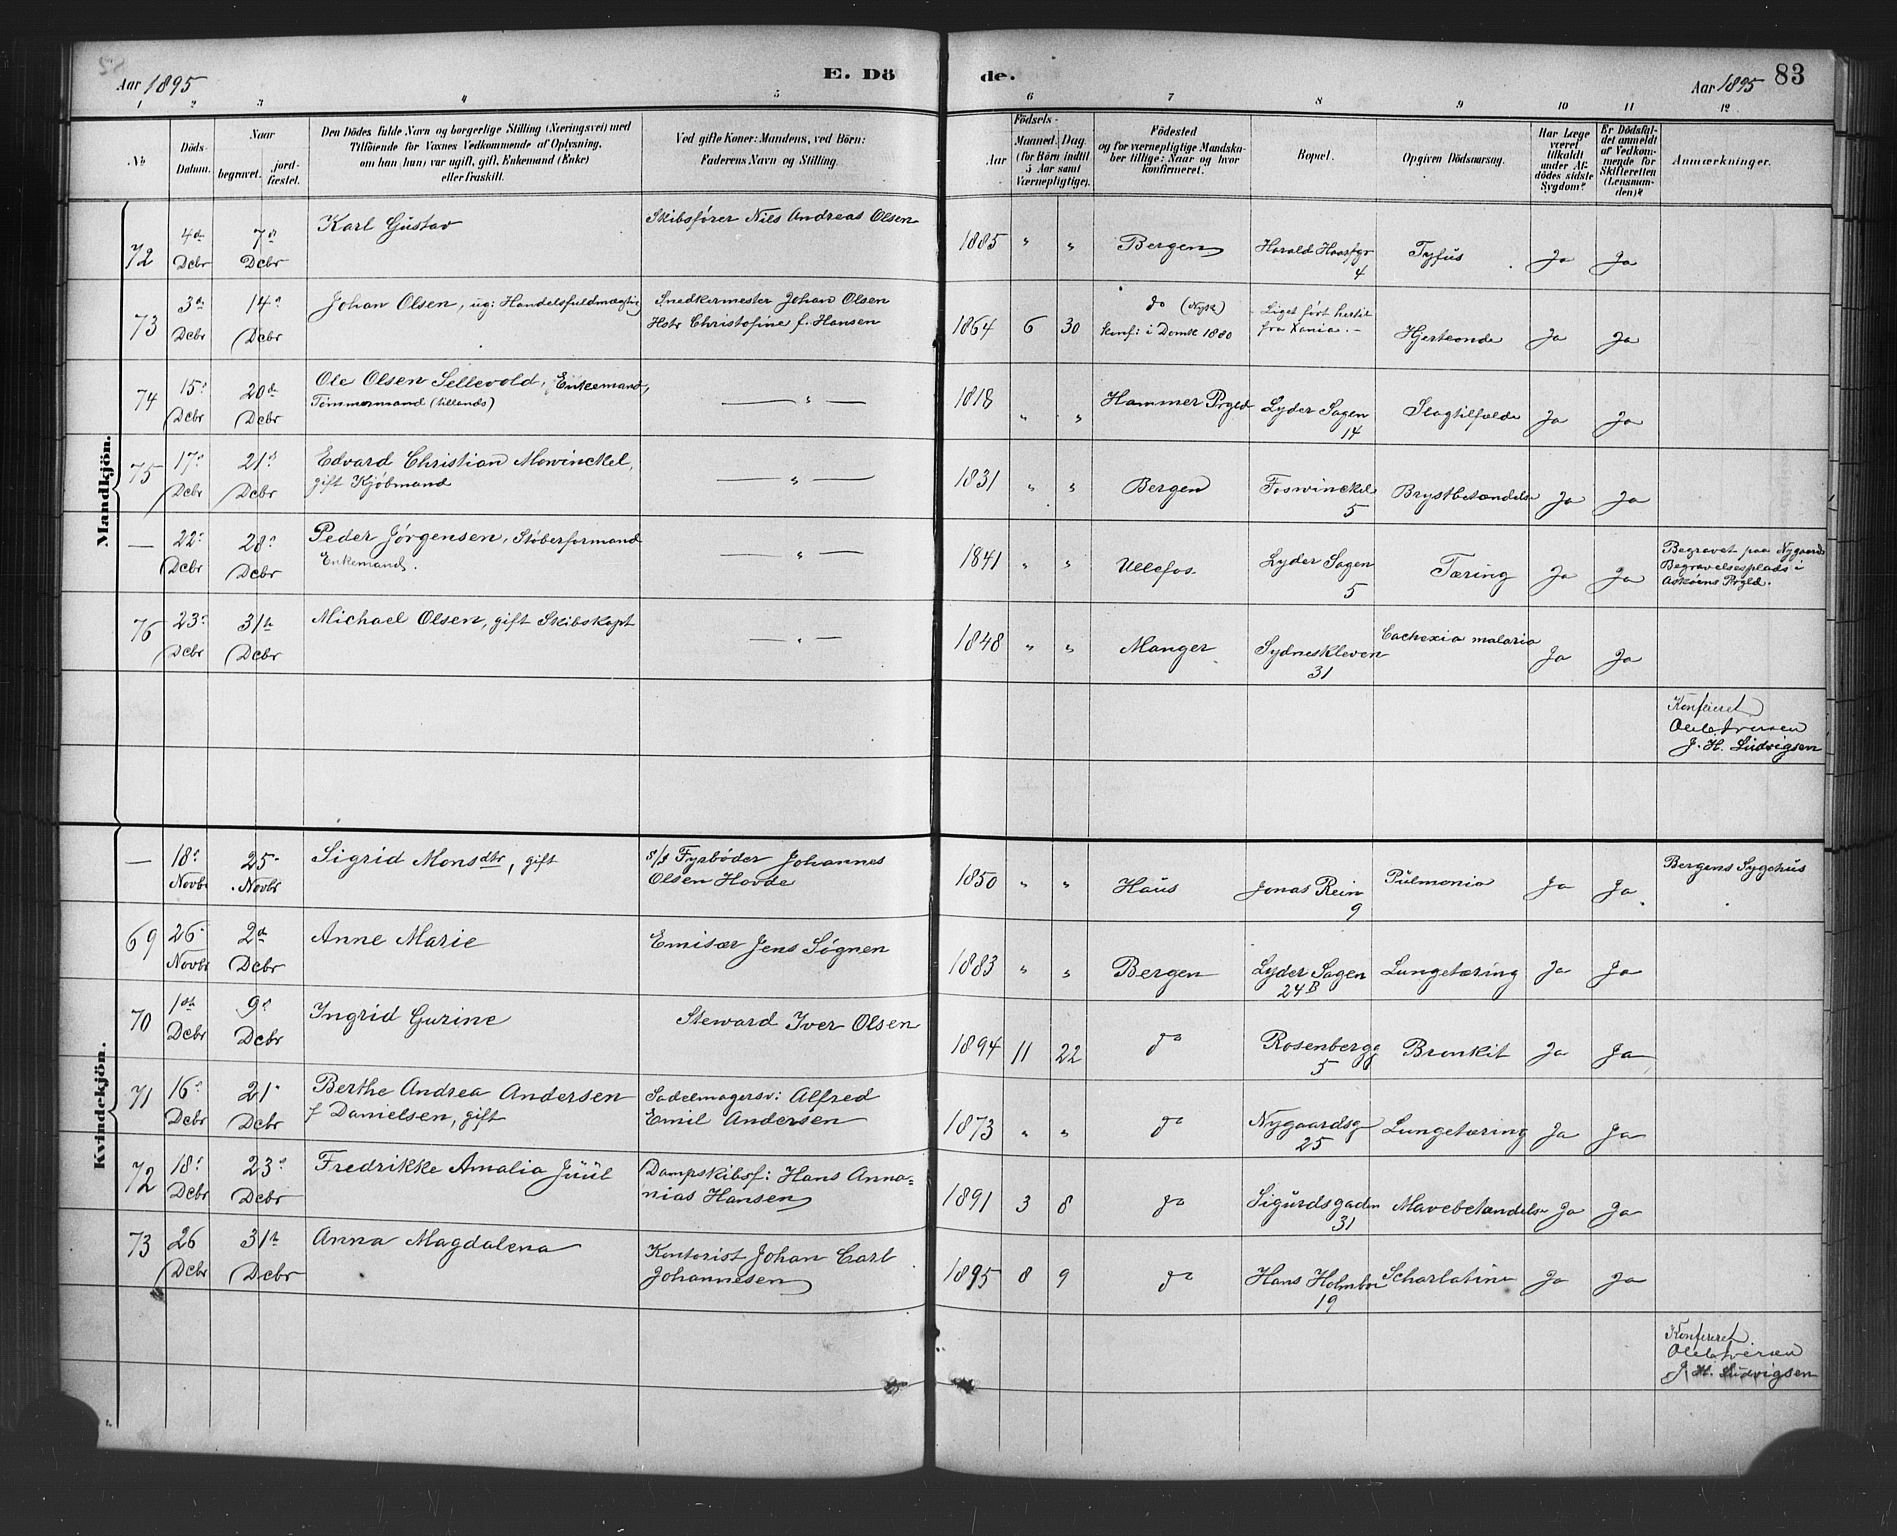 Aar 1895
E. Dö
de.
Aar 1895
83
1 2 3 4 5 6 7 8 9 10 11 12
No
Döds-
Datum.
Naar
begravet.
jord-
fæstet.
Den Dödes fulde Navn og borgerlige Stilling (Næringsvei) med
Tilföiende for Voxnes Vedkommende af Oplysning,
om han (hun) var ugift, gift, Enkemand (Enke)
eller fraskilt.
Ved gifte Koner: Mandens, ved Börn:
Faderens Navn og Stilling.
Födsels-
Aar
Maaned.
Dag.
(for Börn indtil
5 Aar samt
Værnepligtige).
Födested
og for værnepligtige Mandska-
ber tillige: Naar og hvor
konfirmeret.
Bopæl.
Opgiven Dödsaarsag.
Har Læge
været
tilkaldt
under Af-
dödes sidste
Sygdom?
Er Dödsfal-
det anmeldt
af Vedkom-
mende for
Skifteretten
(Lensman-
den)?
Anmærkninger.
Mandkjön.
72 4de Dcbr 7de Dcbr Karl Gustav Skibsfører Nils Andreas Olsen 1885 " " Bergen Harald Haarfgr 4 Tyfus Ja Ja
73 3de Dcbr 14de Dcbr Johan Olsen, ug: Handelsfuldmægtig Snedkermester Johan Olsen
Hstr Christofine f. Hansen 1864 6 30 do (Nyk)
konf: i Domk 1880 Liget ført hertil
fra Xania. Hjerteonde Ja Ja
74 15de Dcbr 20de Dcbr Ole Olsen Sellevold, Enkemand,
Tømmermand (tillands) " 1818 " " Hammer Prgld Lyder Sagen 14 Slagtilfælde Ja Ja
75 17de Dcbr 21de Dcbr Edvard Christian Mowinckel,
gift Kjøbmand " 1831 " " Bergen Foswinckels 5 Brystbetændelse Ja Ja
— 22de Dcbr 28de Dcbr Peder Jørgensen, Støberformand
Enkemand. " 1841 " " Ulefos. Lyder Sagen 5 Tæring Ja Ja Begravet paa Nygaards
Begravelsesplads i
Askøens Prgld.
76 23de Dcbr 31te Dcbr Michael Olsen, gift Skibskapt " 1848 " " Manger Sydneskleven 31 Cachexia malaria Ja Ja
Konfereret
J. H. Ludvigsen
Kvindekjön.
— 18de Novbr 25de Novbr Sigrid Monsdtr, gift s/g Fyrbøder Johannes
Olsen Hovde 1850 " " Haus Jonas Rein 9 Pulmonia Ja Ja Bergens Sygehus
69 26de Novbr 2de Dcbr Anne Marie Emisær Jens Søgnen 1883 " " Bergen Lyder Sagen 24B Lungetæring Ja Ja
70 1ste Dcbr 9de Dcbr Ingrid Gurine Steward Iver Olsen 1894 11 22 do Rosenbergg 5 Bronkit Ja Ja
71 16de Dcbr 21de Dcbr Berthe Andrea Andersen
f Danielsen, gift Sadelmagersv: Alfred
Emil Andersen 1873 " " do Nygaardsg 25 Lungetæring Ja Ja
72 18de Dcbr 23de Dcbr Fredrikke Amalia Juul Dampskibsf: Hans Anna-
nias Hansen 1891 3 8 do Sigurdsgaden 31 Mavebetændelse Ja Ja
73 26 Dcbr 31te Dcbr Anna Magdalena Kontorist Johan Carl
Johannesen 1895 8 9 do Hans Holmboe 19 Scharlatina Ja Ja
Konfereret
J. H. Ludvigsen